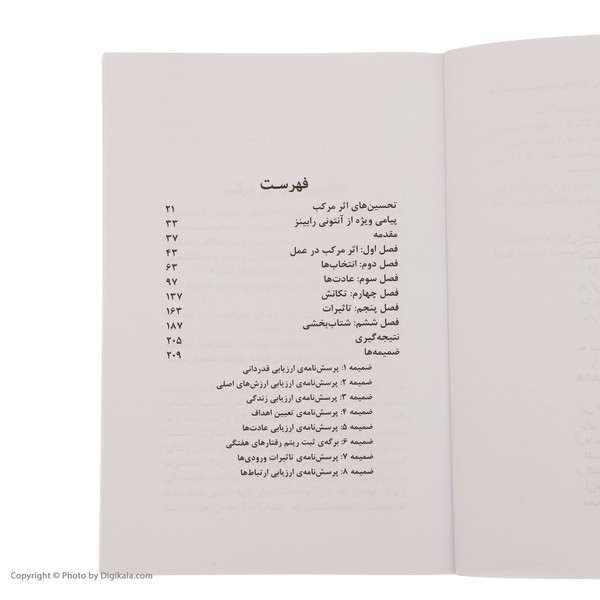 فهرست
تحسین‌های اثر مرکب ۲۱
پیامی ویژه از آنتونی رابینز ۳۳
مقدمه ۳۷
فصل اول: اثر مرکب در عمل ۴۳
فصل دوم: انتخاب‌ها ۶۳
فصل سوم: عادت‌ها ۹۷
فصل چهارم: تکانش ۱۳۷
فصل پنجم: تاثیرات ۱۶۳
فصل ششم: شتاب‌بخشی ۱۸۷
نتیجه‌گیری ۲۰۵
ضمیمه‌ها ۲۰۹
ضمیمه ۱: پرسش‌نامه‌ی ارزیابی قدردانی
ضمیمه ۲: پرسش‌نامه‌ی ارزیابی ارزش‌های اصلی
ضمیمه ۳: پرسش‌نامه‌ی ارزیابی زندگی
ضمیمه ۴: پرسش‌نامه‌ی تعیین اهداف
ضمیمه ۵: پرسش‌نامه‌ی ارزیابی عادت‌ها
ضمیمه ۶: برگه‌ی ثبت ریتم رفتارهای هفتگی
ضمیمه ۷: پرسش‌نامه‌ی تاثیرات ورودی‌ها
ضمیمه ۸: پرسش‌نامه‌ی ارزیابی ارتباط‌ها
Copyright © Photo by Digikala.com